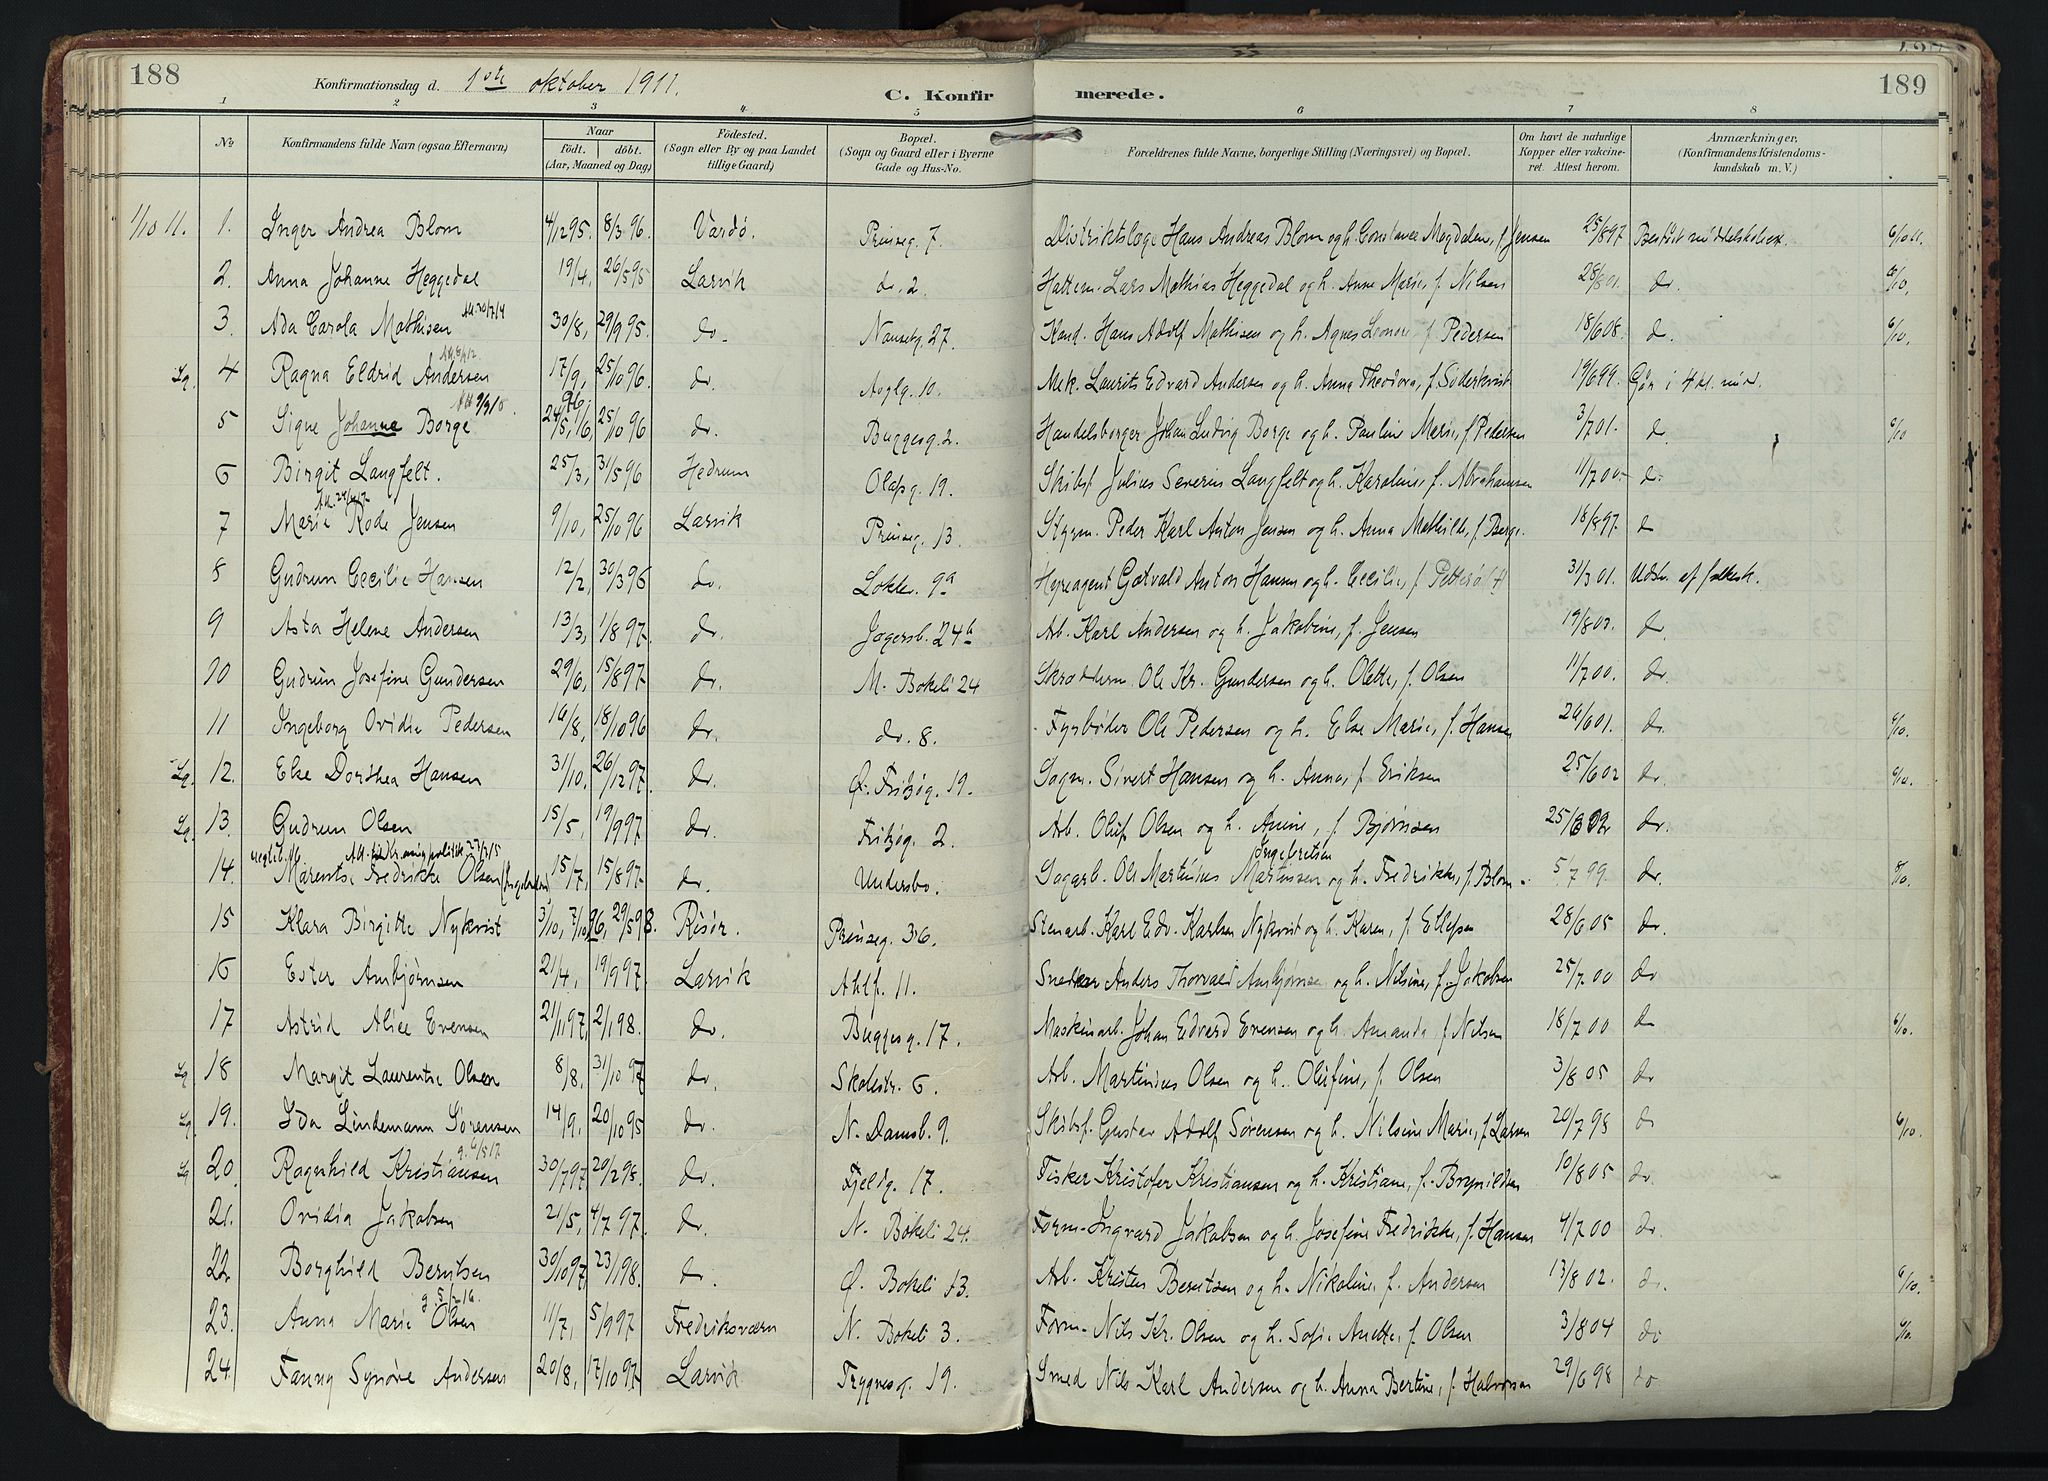 188
Konfirmationsdag d. 1ste oktober 1911.
C. Konfirmerede.
189
1 2 3 4 5 6 7 8
No
Konfirmandens fulde Navn (ogsaa Efternavn)
Naar
födt. döbt.
(Aar, Maaned og Dag)
Födested.
(Sogn eller By og paa Landet
tillige Gaard)
Bopæl.
(Sogn og Gaard eller i Byerne
Gade og Hus-No.
Forældrenes fulde Navne, borgerlige Stilling (Næringsvei) og Bopæl.
Om havt de naturlige
Kopper eller vakcine-
ret. Attest herom.
Anmærkninger.
(Konfirmandens Kristendoms-
kundskab m. V.)
1/10 11. 1. Inger Andrea Blom 4/12 95. 8/3 96. Vardø. Prinseg. 7. Distriktslæge Hans Andreas Blom og h. Constance Magdalene, f. Jensen 25/8 97 Bestaat middelskoleex. 6/10 11.
2. Anna Johanne Heggedal 19/4, 26/5 95 Larvik do. 2. Hattem. Lars Mathias Heggedal og h. Anne Marie, f. Nilsen 28/8 01. do. 6/10.
3. Ada Carola Mathisen 30/8, 29/9 95. do. Nansetg. 27. Kand. Hans Adolf Mathisen og h. Agnes Leonore f. Pedersen 18/6 08. do. 6/10.
Lg. 4 Ragna Eldrid Andersen 17/9, 25/10 96. do. 10. Mek. Laurits Edvard Andersen og h. Anna Theodora, f. Söderkvist 19/6 99. Går i 4 kl. mid.
5 Signe Johanne Borge 24/5, 96, 25/10 96 do. Buggesg. 2. Handelsborger Johan Ludvig Borge og h. Pauline Marie, f. Pedersen 3/7 01. do. 6/10
6 Birgit Langfelt. 25/3, 31/5 96 Hedrum Olafsg. 19. Skibsf. Julius Severin Langfelt og h. Karoline, f. Abrahamsen 11/7 00. do.
7 Marie Rode Jensen 9/10, 25/10 96 Larvik Prinseg. 13. Styrm. Peder Karl Anton Jensen og h. Anna Mathilde, f. Berge. 18/8 97. do
8 Gudrun Cecilie Hansen 12/2, 30/3 96 do. Løkkev. 9a Hyreagent Anton Hansen og h. Cecilie, f. 31/3 01. Udskr. af folkesk.
9 Asta Helene Andersen 13/3, 1/8 97. do. Jegersb. 24b Arb. Karl Andersen og h. Jakobine, f. Jensen 19/8 02. do.
10 Gudrun Josefine Gundersen 29/6, 15/8 97. do. M. Bøkeli 24 Skrædderm. Ole Kr. Gundersen og h. Olette, f. Olsen 11/7 00. do.
11 Ingeborg Ovidie Pedersen 16/8, 18/10 96 do. do. 8. Fyrbøder Ole Pedersen og h. Else Marie, f. Hansen 26/6 01. do. 6/10.
Lg. 12. Else Dorthea Hansen 31/10. 26/12 97. do. Ø. Fritzøg. 19. Sagm. Sivert Hansen og h. Anna, f. Eriksen 25/6 02 do. 6/10.
Lg. 13. Gudrun Olsen 15/5, 19/9 97 do. Fritzøg. 2. Arb. Oluf Olsen og h. Anine, f. Bjørnsen 25/6 02 do.
14. Marentse Fredrikke Olsen (Ingebretsen) 15/7, 15/8 97. do. Undersbo. Sagarb. Ole Martinius Martinsen Ingebretsen og h. Fredrikke, f. Blom. 5/7 99. do. 6/10.
15 Klara Birgitte Nykvist 3/10, 7/10 96, 29/5 98. Risør. Prinseg. 36. Stenarb. Karl Edv. Karlsen Nykvist og h. Karen, f. Ellefsen 28/6 05 do.
16 Ester Ambjørnsen 21/4, 19/9 97. Larvik Ahlf. 11. Snedker Anders Thorvald Ambjørnsen og h. Nilsine, f. Jakobsen 25/7 00 do
17 Astrid Alice Evensen 21/1 97, 2/1 98. do. Buggesg. 17. Maskinarb. Johan Edvard Evensen og h. Amanda f. Nilsen 18/7 00 do 6/10.
Lg 18 Margit Laurentse Olsen 8/8, 31/10 97 do. Skolestr. 6. Arb. Martinius Olsen og h. Olufine, f. Olsen 3/8 05 do
Lg. 19. Ida Lindemann Sørensen 14/9, 20/10 95 do. N. Damsb. 9. Skibsf. Gustav Adolf Sørensen og h. Nilsine Marie, f. Larsen 20/7 98 do 6/10.
Lg 20. Ragnhild Kristiansen 30/7 97 20/2 98. do. Fjeldg. 17. Fisker Kristofer Kristiansen og h. Kristiane, f. Brynildsen 10/8 05 do.
21. Ovidia Jakobsen 21/5, 4/7 97. do. N. Bøkeli 24. Form. Ingvard Jakobsen og h. Josefine Fredrikke, f. Hansen 4/7 00 do
22 Borghild Berntsen 30/10 97 23/1 98. do. Ø. Bøkeli 13. Arb. Kristen Berntsen og h. Nikoline, f. Andersen 13/8 02. do. 6/10.
23. Anna Marie Olsen 11/7, 5/9 97 Fredriksværn N. Bøkeli 3. Form. Nils Kr. Olsen og h. Sofie Anette, f. Olsen 3/8 04 do 6/10.
24. Fanny Synøve Andersen 20/8, 17/10 97 Larvik Tryggvesg. 19. Smed Nils Karl Andersen og h. Anna Bertine, f. Halvorsen 29/6 98 do